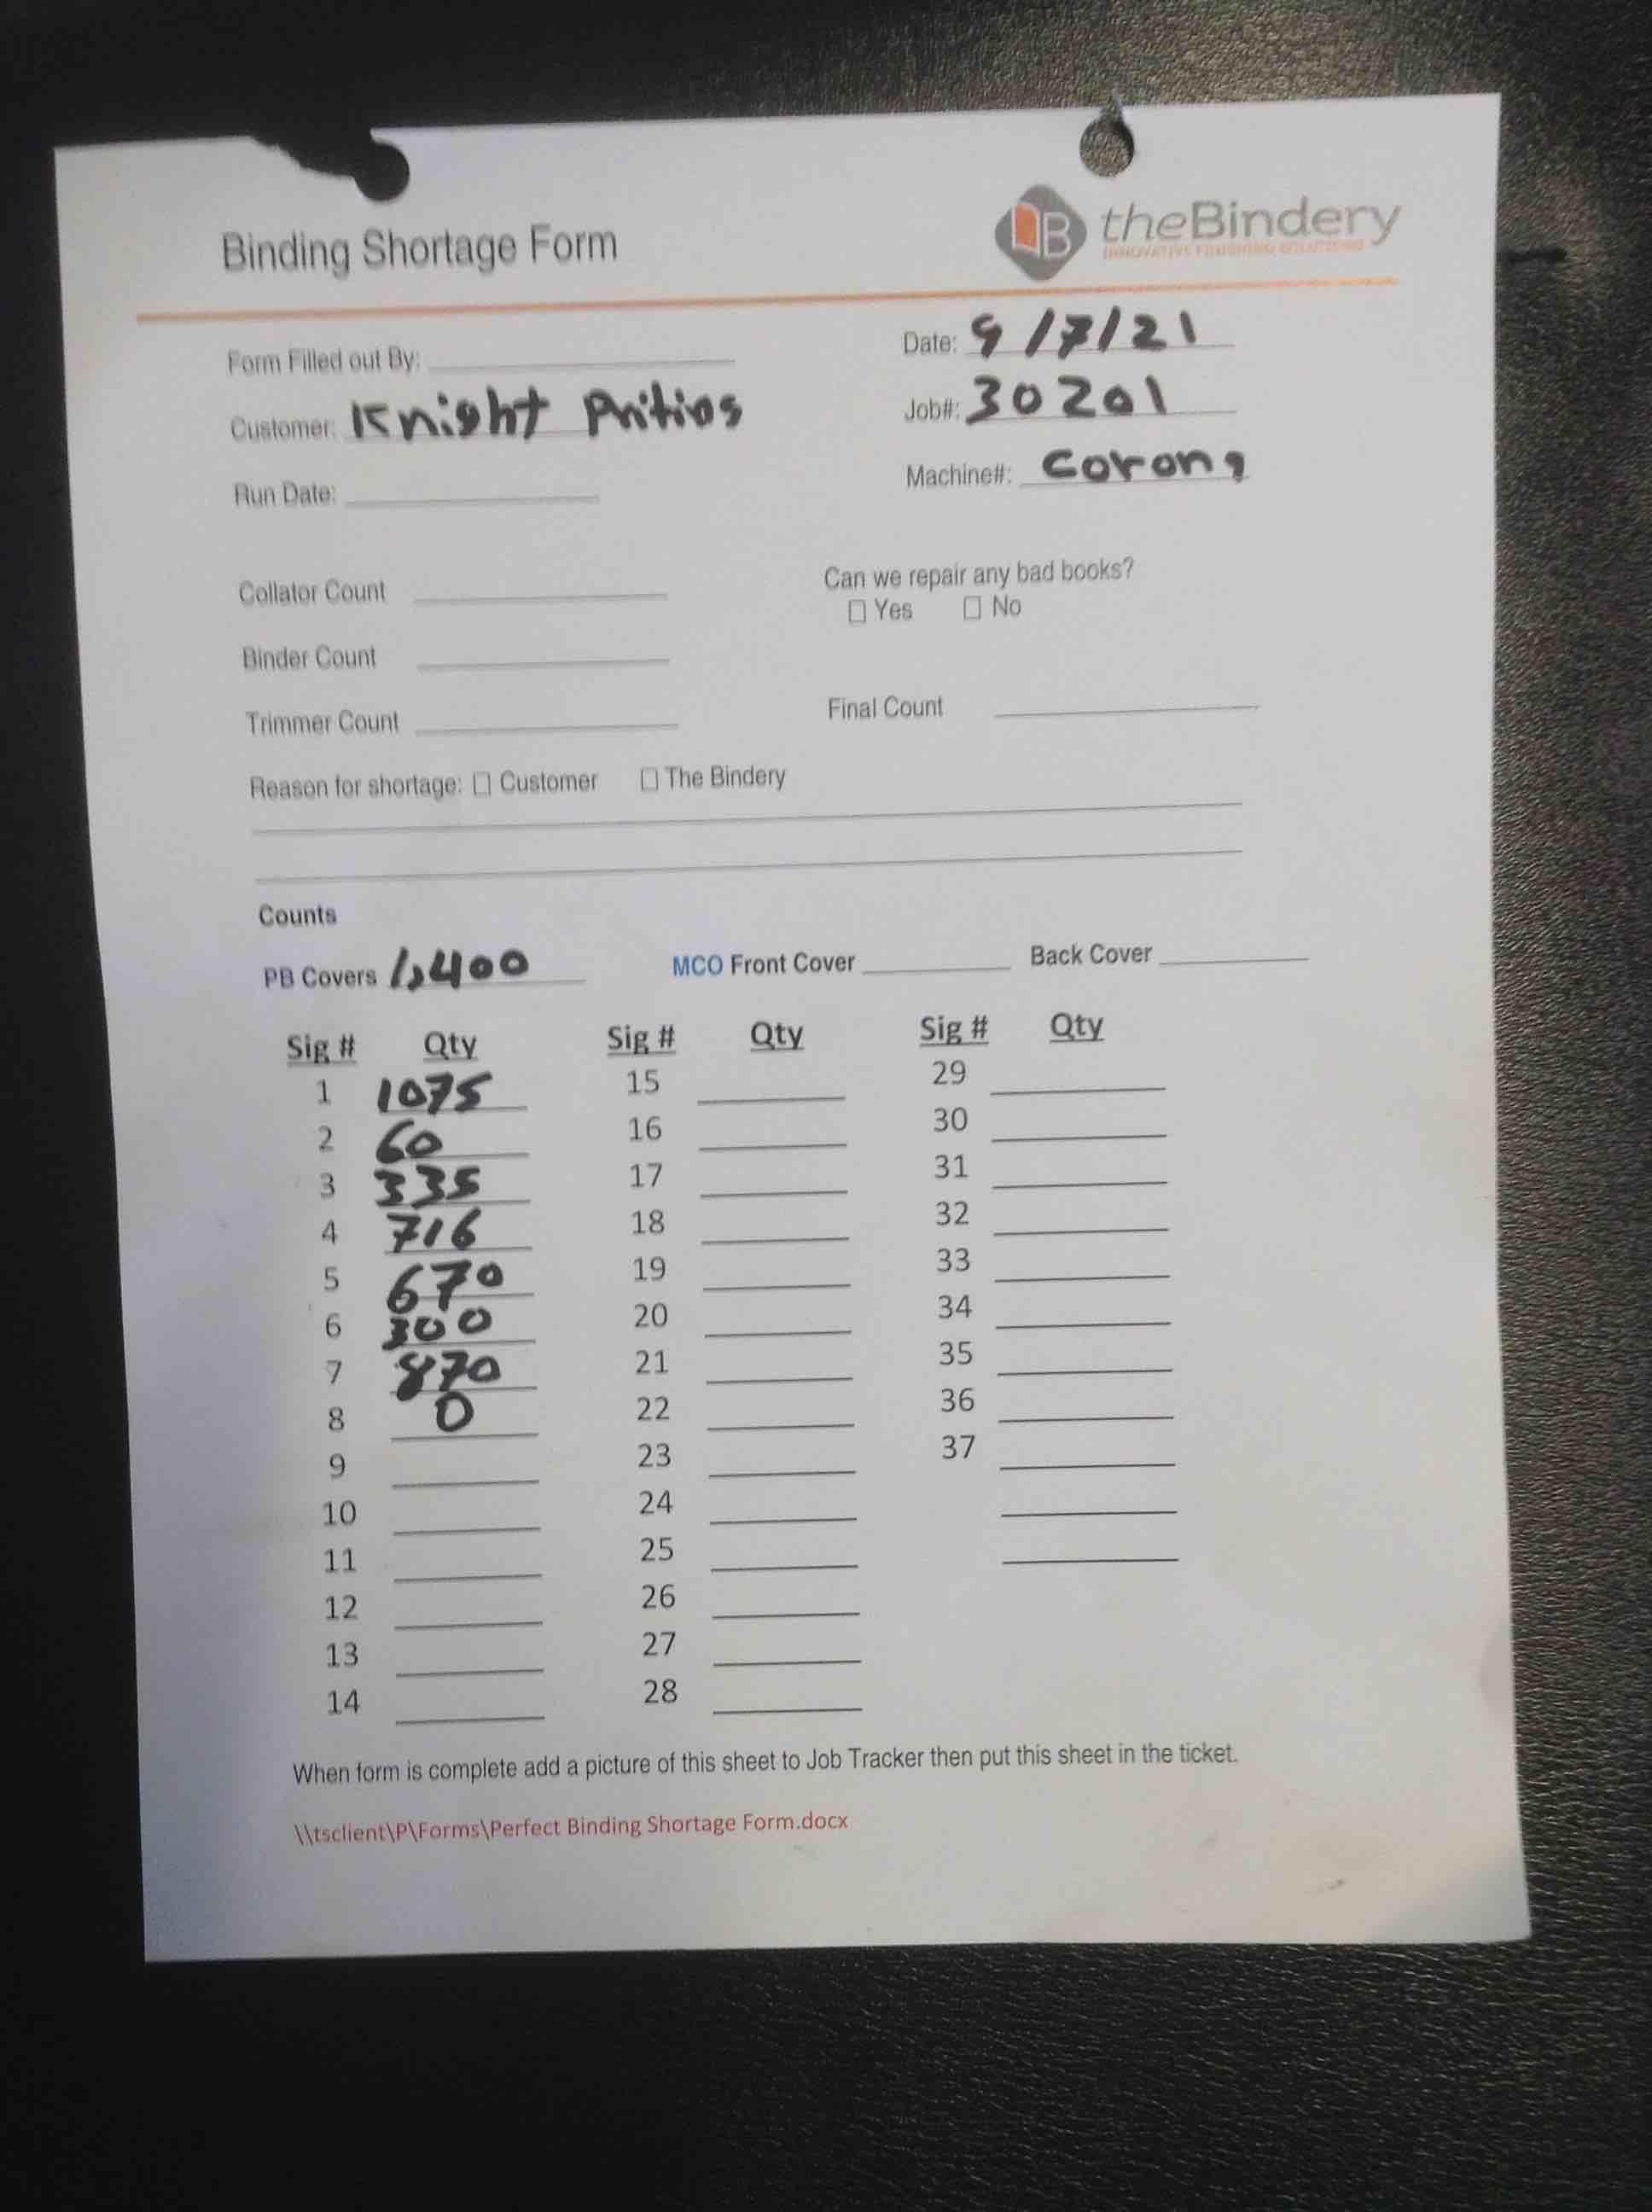 theBindery
INNOVATIVE FINISHING SOLUTIONS
Binding Shortage Form
Form Filled out By:
Date: 9/7/21
Customer: Knight Pritios
Job#: 30201
Run Date:
Machine#: Corona
Collator Count
Can we repair any bad books?
☐ Yes ☐ No
Binder Count
Trimmer Count
Final Count
Reason for shortage: ☐ Customer ☐ The Bindery
Counts
PB Covers 1,400 MCO Front Cover Back Cover
Sig # Qty Sig # Qty Sig # Qty
1 1075 15 29
2 60 16 30
3 335 17 31
4 716 18 32
5 670 19 33
6 300 20 34
7 870 21 35
8 0 22 36
9 23 37
10 24
11 25
12 26
13 27
14 28
When form is complete add a picture of this sheet to Job Tracker then put this sheet in the ticket.
\\tsclient\P\Forms\Perfect Binding Shortage Form.docx